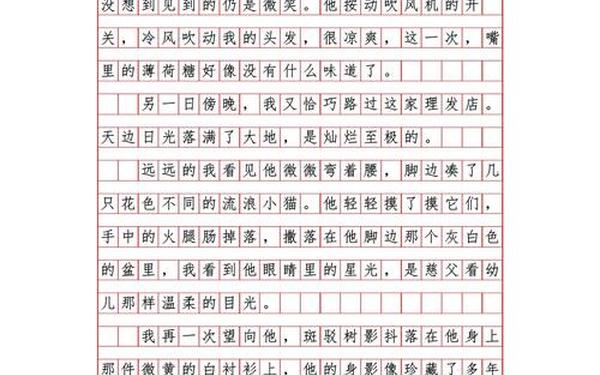 没想到见到的仍是微笑。他按动吹风机的开
关，冷风吹动我的头发，很凉爽，这一次，嘴
里的薄荷糖好像没有什么味道了。
另一日傍晚，我又恰巧路过这家理发店。
天边日光落满了大地，是灿烂至极的。
远远的我看见他微微弯着腰，脚边凑了几
只花色不同的流浪小猫。他轻轻摸了摸它们，
手中的火腿肠掉落，撒落在他脚边那个灰白色
的盆里，我看到他眼睛里的星光，是慈父看幼
儿那样温柔的目光。
我再一次望向他，斑驳树影抖落在他身上
那件微黄的白衬衫上，他的身影像珍藏了多年